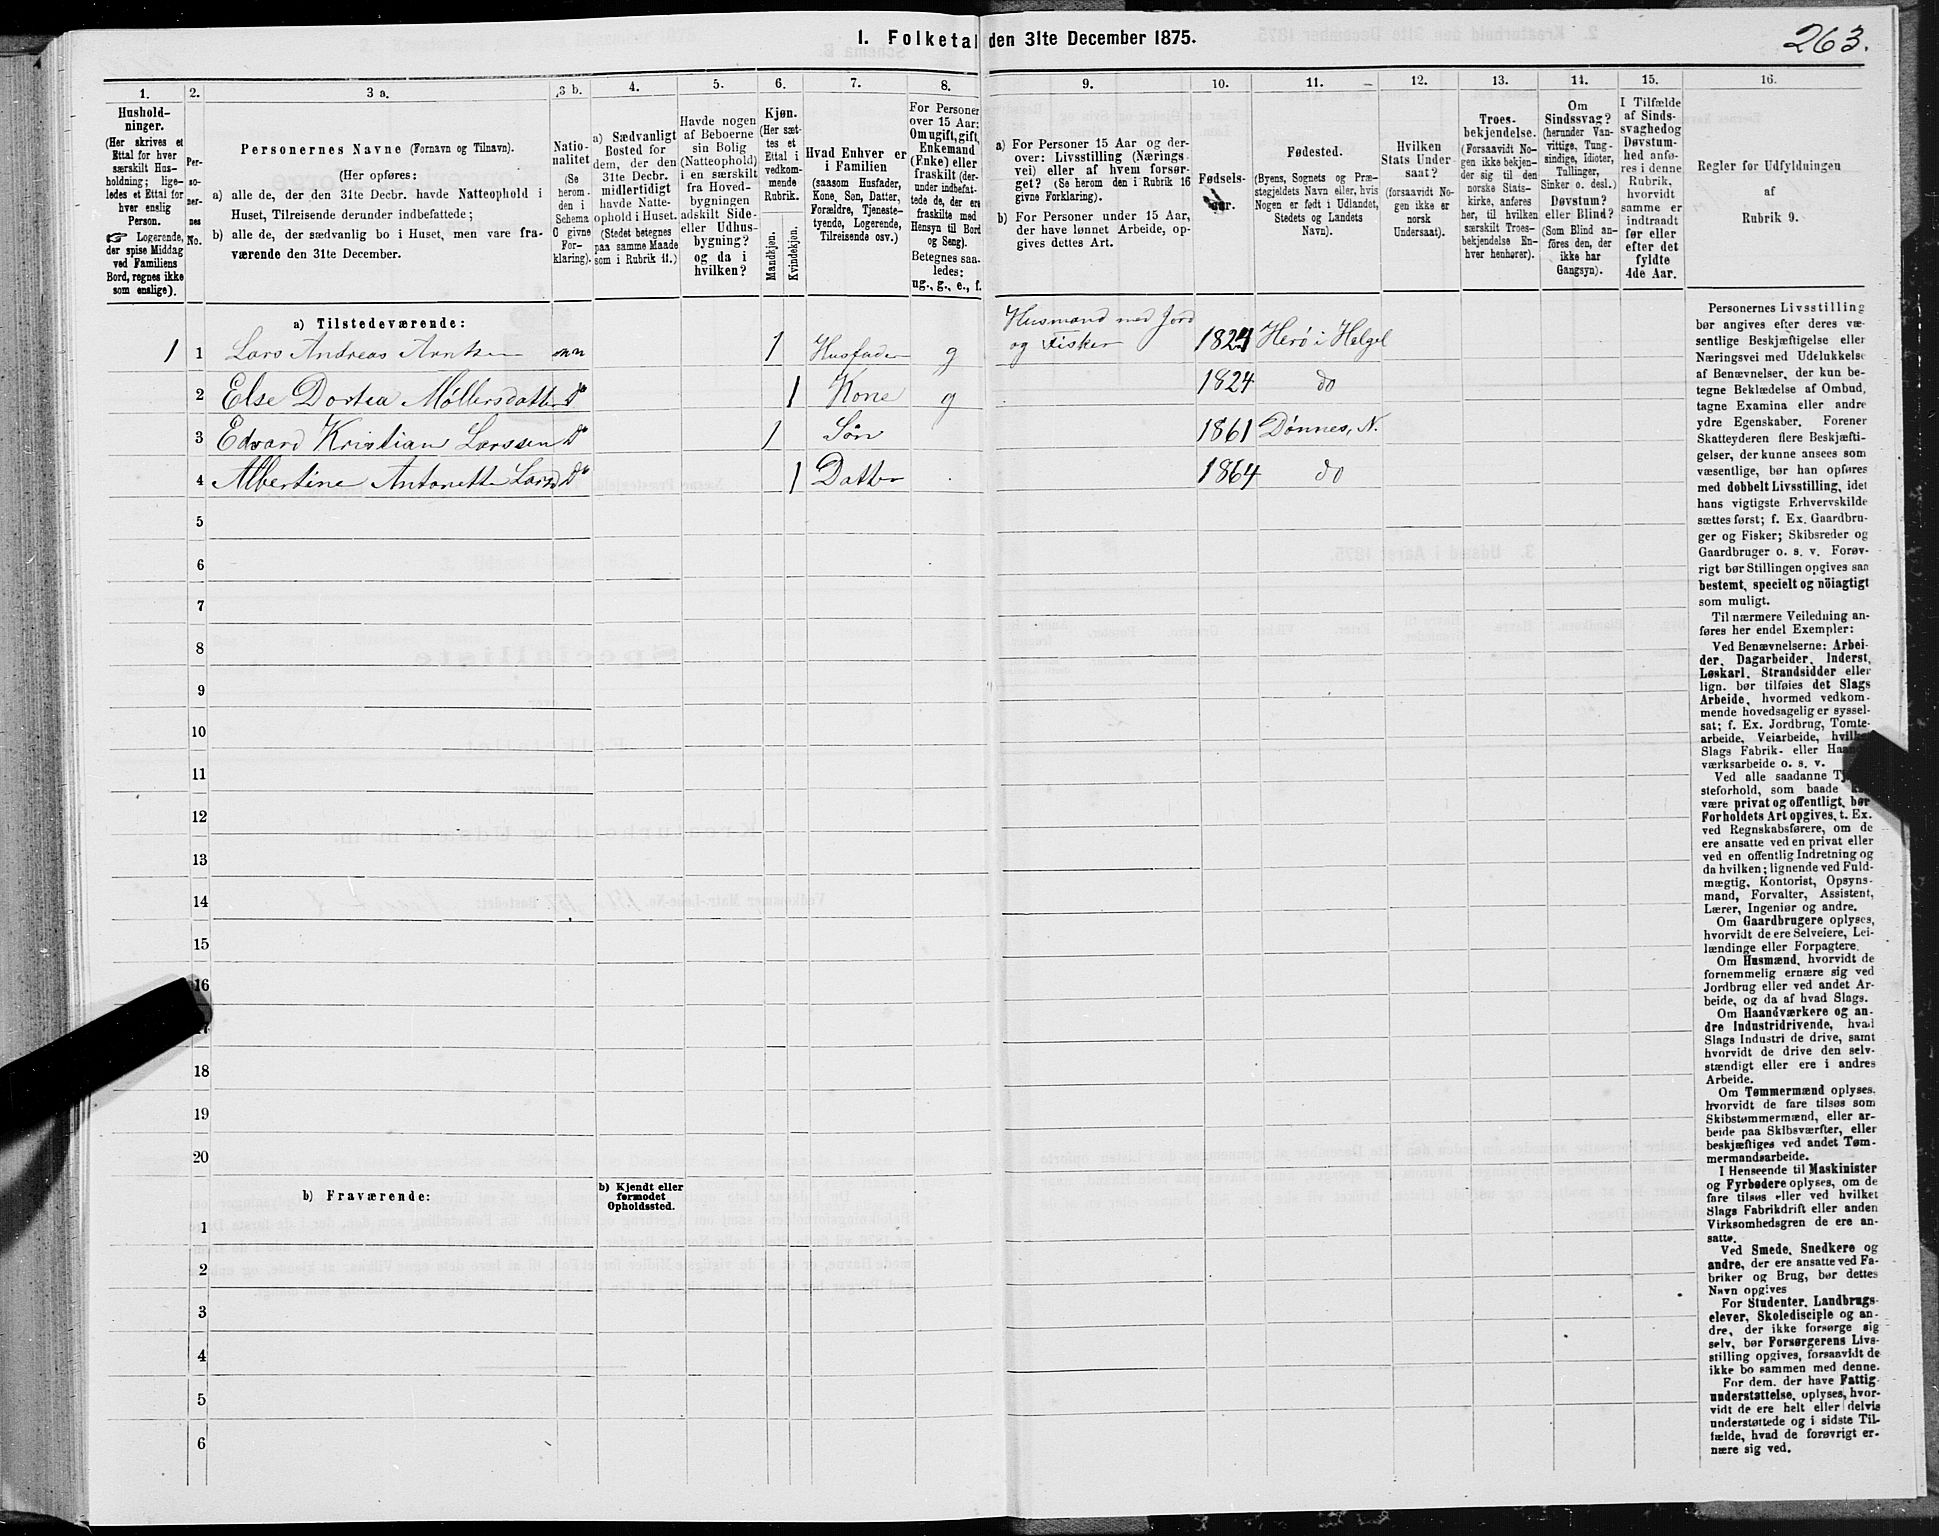 1. Folketal den 31te December 1875.
263.
1.
Hushold-
ninger.
(Her skrives et
Ettal for hver
særskilt Hus-
holdning; lige-
ledes et Ettal for
hver enslig
Person.
☞ Logerende,
der spise Middag
ved Familiens
Bord, regnes ikke
som enslige).
2.
Per-
so-
ner-
nes
No.
3 a.
Personernes Navne (Fornavn og Tilnavn).
(Her opføres:
a) alle de, der den 31te Decbr. havde Natteophold i
Huset, Tilreisende derunder indbefattede;
b) alle de, der sædvanlig bo i Huset, men vare fra-
værende den 31te December.
3 b.
Natio-
nalitet
(Se
herom
den i
Schema
C givne
For-
klaring).
4.
a) Sædvanligt
Bosted for
dem, der den
31te Decbr.
midlertidigt
havde Natte-
ophold i Huset.
(Stedet betegnes
paa samme Maade
som i Rubrik 11.)
5.
Havde nogen
af Beboerne
sin Bolig
(Natteophold)
i en særskilt
fra Hoved-
bygningen
adskilt Side-
eller Udhus-
bygning?
og da i
hvilken?
6.
Kjøn.
(Her sæt-
tes et
Ettal i
vedkom-
mende
Rubrik.
Mandkjøn.
Kvindekjøn.
7.
Hvad Enhver er
i Familien
(saasom Husfader,
Kone, Søn, Datter,
Forældre, Tjeneste-
tyende, Logerende,
Tilreisende osv.)
8.
For Personer
over 15 Aar:
Om ugift, gift,
Enkemand
(Enke) eller
fraskilt (der-
under indbefat-
tede de, der ere
fraskilte med
Hensyn til Bord
og Seng).
Betegnes saa-
ledes:
ug., g., e., f.
9.
a) For Personer 15 Aar og der-
over: Livsstilling (Nærings-
vei) eller af hvem forsør-
get? (Se herom den i Rubrik 16
givne Forklaring).
b) For Personer under 15 Aar,
der have lønnet Arbeide, op-
gives dettes Art.
10.
Fødsels-
aar.
11.
Fødested.
(Byens, Sognets og Præ-
stegjeldets Navn eller, hvis
Nogen er født i Udlandet,
Stedets og Landets
Navn).
12.
Hvilken
Stats Under-
saat?
(forsaavidt No-
gen ikke er
norsk
Undersaat).
13.
Troes-
bekjendelse.
(Forsaavidt No-
gen ikke bekjen-
der sig til den
norske Stats-
kirke, anføres
her, til hvilken
særskilt Troes-
bekjendelse En-
hver henhører).
14.
Om
Sindssvag?
(herunder Van-
vittige, Tung-
sindige, Idioter,
Tullinger,
Sinker o. desl.)
Døvstum?
eller Blind?
(Som Blind an-
føres den, der
ikke har
Gangsyn).
15.
I Tilfælde
af Sinds-
svaghedog
Døvstum-
hed anfø-
res i denne
Rubrik,
hvorvidt
samme er
indtraadt
før eller
efter det
fyldte
4de Aar.
16.
Regler for Udfyldningen
af
Rubrik 9.
a) Tilstedeværende:
1 1 Lars Andreas Arntsen nn 1 Husfader g Husmand med Jord og Fisker 1824 Herø i Helgel
2 Else Dortea Møllersdatter do 1 Kone g 1824 do
3 Edvard Kristian Larssen do 1 Søn 1861 Dønnes, N.
4 Albertine Antonette Larsd do 1 Datter 1864 do
5
6
7
8
9
10
11
12
13
14
15
16
17
18
19
20
b) Fraværende:
b) Kjendt eller
formodet
Opholdssted.
1
2
3
4
5
6
Personernes Livsstilling
bør angives efter deres væ-
sentlige Beskjæftigelse eller
Næringsvei med Udelukkelse
af Benævnelser, der kun be-
tegne Beklædelse af Ombud,
tagne Examina eller andre
ydre Egenskaber. Forener
Skatteyderen flere Beskjæfti-
gelser, der kunne ansees som
væsentlige, bør han opføres
med dobbelt Livsstilling, idet
hans vigtigste Erhvervskilde
sættes først; f. Ex. Gaardbru-
ger og Fisker; Skibsreder og
Gaardbruger o. s. v. Forøv-
rigt bør Stillingen opgives saa
bestemt, specielt og nöiagtigt
som muligt.
Til nærmere Veiledning an-
føres her endel Exempler:
Ved Benævnelserne: Arbei-
der, Dagarbeider, Inderst,
Løskarl, Strandsidder eller
lign. bør tilføies det Slags
Arbeide, hvormed vedkom-
mende hovedsagelig er syssel-
sat; f. Ex. Jordbrug, Tomte-
arbeide, Veiarbeide, hvilket
Slags Fabrik- eller Haand-
værksarbeide o. s. v.
Ved alle saadanne Tje-
steforhold, som baade kan
være privat og offentligt, bør
Forholdets Art opgives, t. Ex.
ved Regnskabsførere, om de
ere ansatte ved en privat eller
ved en offentlig Indretning og
da hvilken; lignende ved Fuld-
mægtig, Kontorist, Opsyns-
mand, Forvalter, Assistent,
Lærer, Ingeniør og andre.
Om Gaardbrugere oplyses,
hvorvidt de ere Selveiere, Lei-
lændinge eller Forpagtere.
Om Husmænd, hvorvidt de
fornemmelig ernære sig ved
Jordbrug eller ved andet Ar-
beide, og da af hvad Slags.
Om Haandværkere og an-
dre Industridrivende, hvad
Slags Industri de drive, samt
hvorvidt de drive den selv-
stændigt eller ere i andres
Arbeide.
Om Tømmermænd oplyses,
hvorvidt de fare tilsøs som
Skibstømmermænd, eller ar-
beide paa Skibsværfter, eller
beskjæftiges ved andet Tøm-
mermandsarbeide.
I Henseende til Maskinister
og Fyrbødere oplyses, om de
fare tilsøs eller ved hvilket
Slags Fabrikdrift eller anden
Virksomhedsgren de ere an-
satte.
Ved Smede, Snedkere og
andre, der ere ansatte ved Fa-
briker og Brug, bør dettes
Navn opgives
For Studenter, Landbrugs-
elever, Skoledisciple og an-
dre, der ikke forsørge sig
selv, bør Forsørgerens Livs-
stilling opgives, forsaavidt de
ikke bo sammen med denne.
For dem, der have Fattig-
understøttelse, oplyses, hvor-
vidt de ere helt eller delvis
understøttede og i sidste Til-
fælde, hvad de forøvrigt er-
nære sig ved.